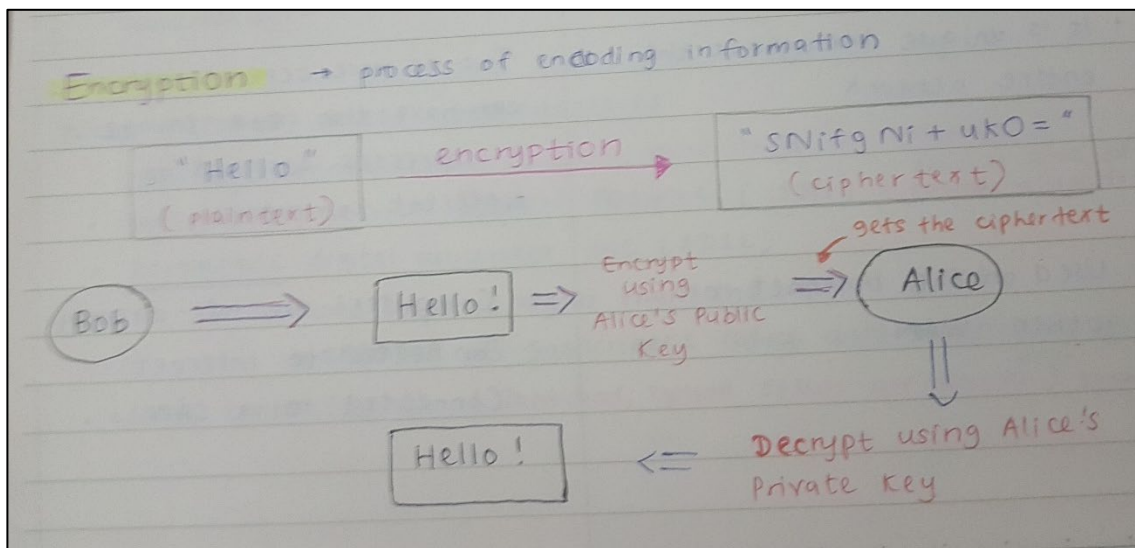 Encryption → process of encoding information
"Hello" encryption "sNifgNi+ukO="
(plaintext) (ciphertext)
gets the ciphertext
Bob ⇒ Hello! ⇒ Encrypt using Alice's Public Key ⇒ Alice
Decrypt using Alice's
Private Key
⇐
Hello!